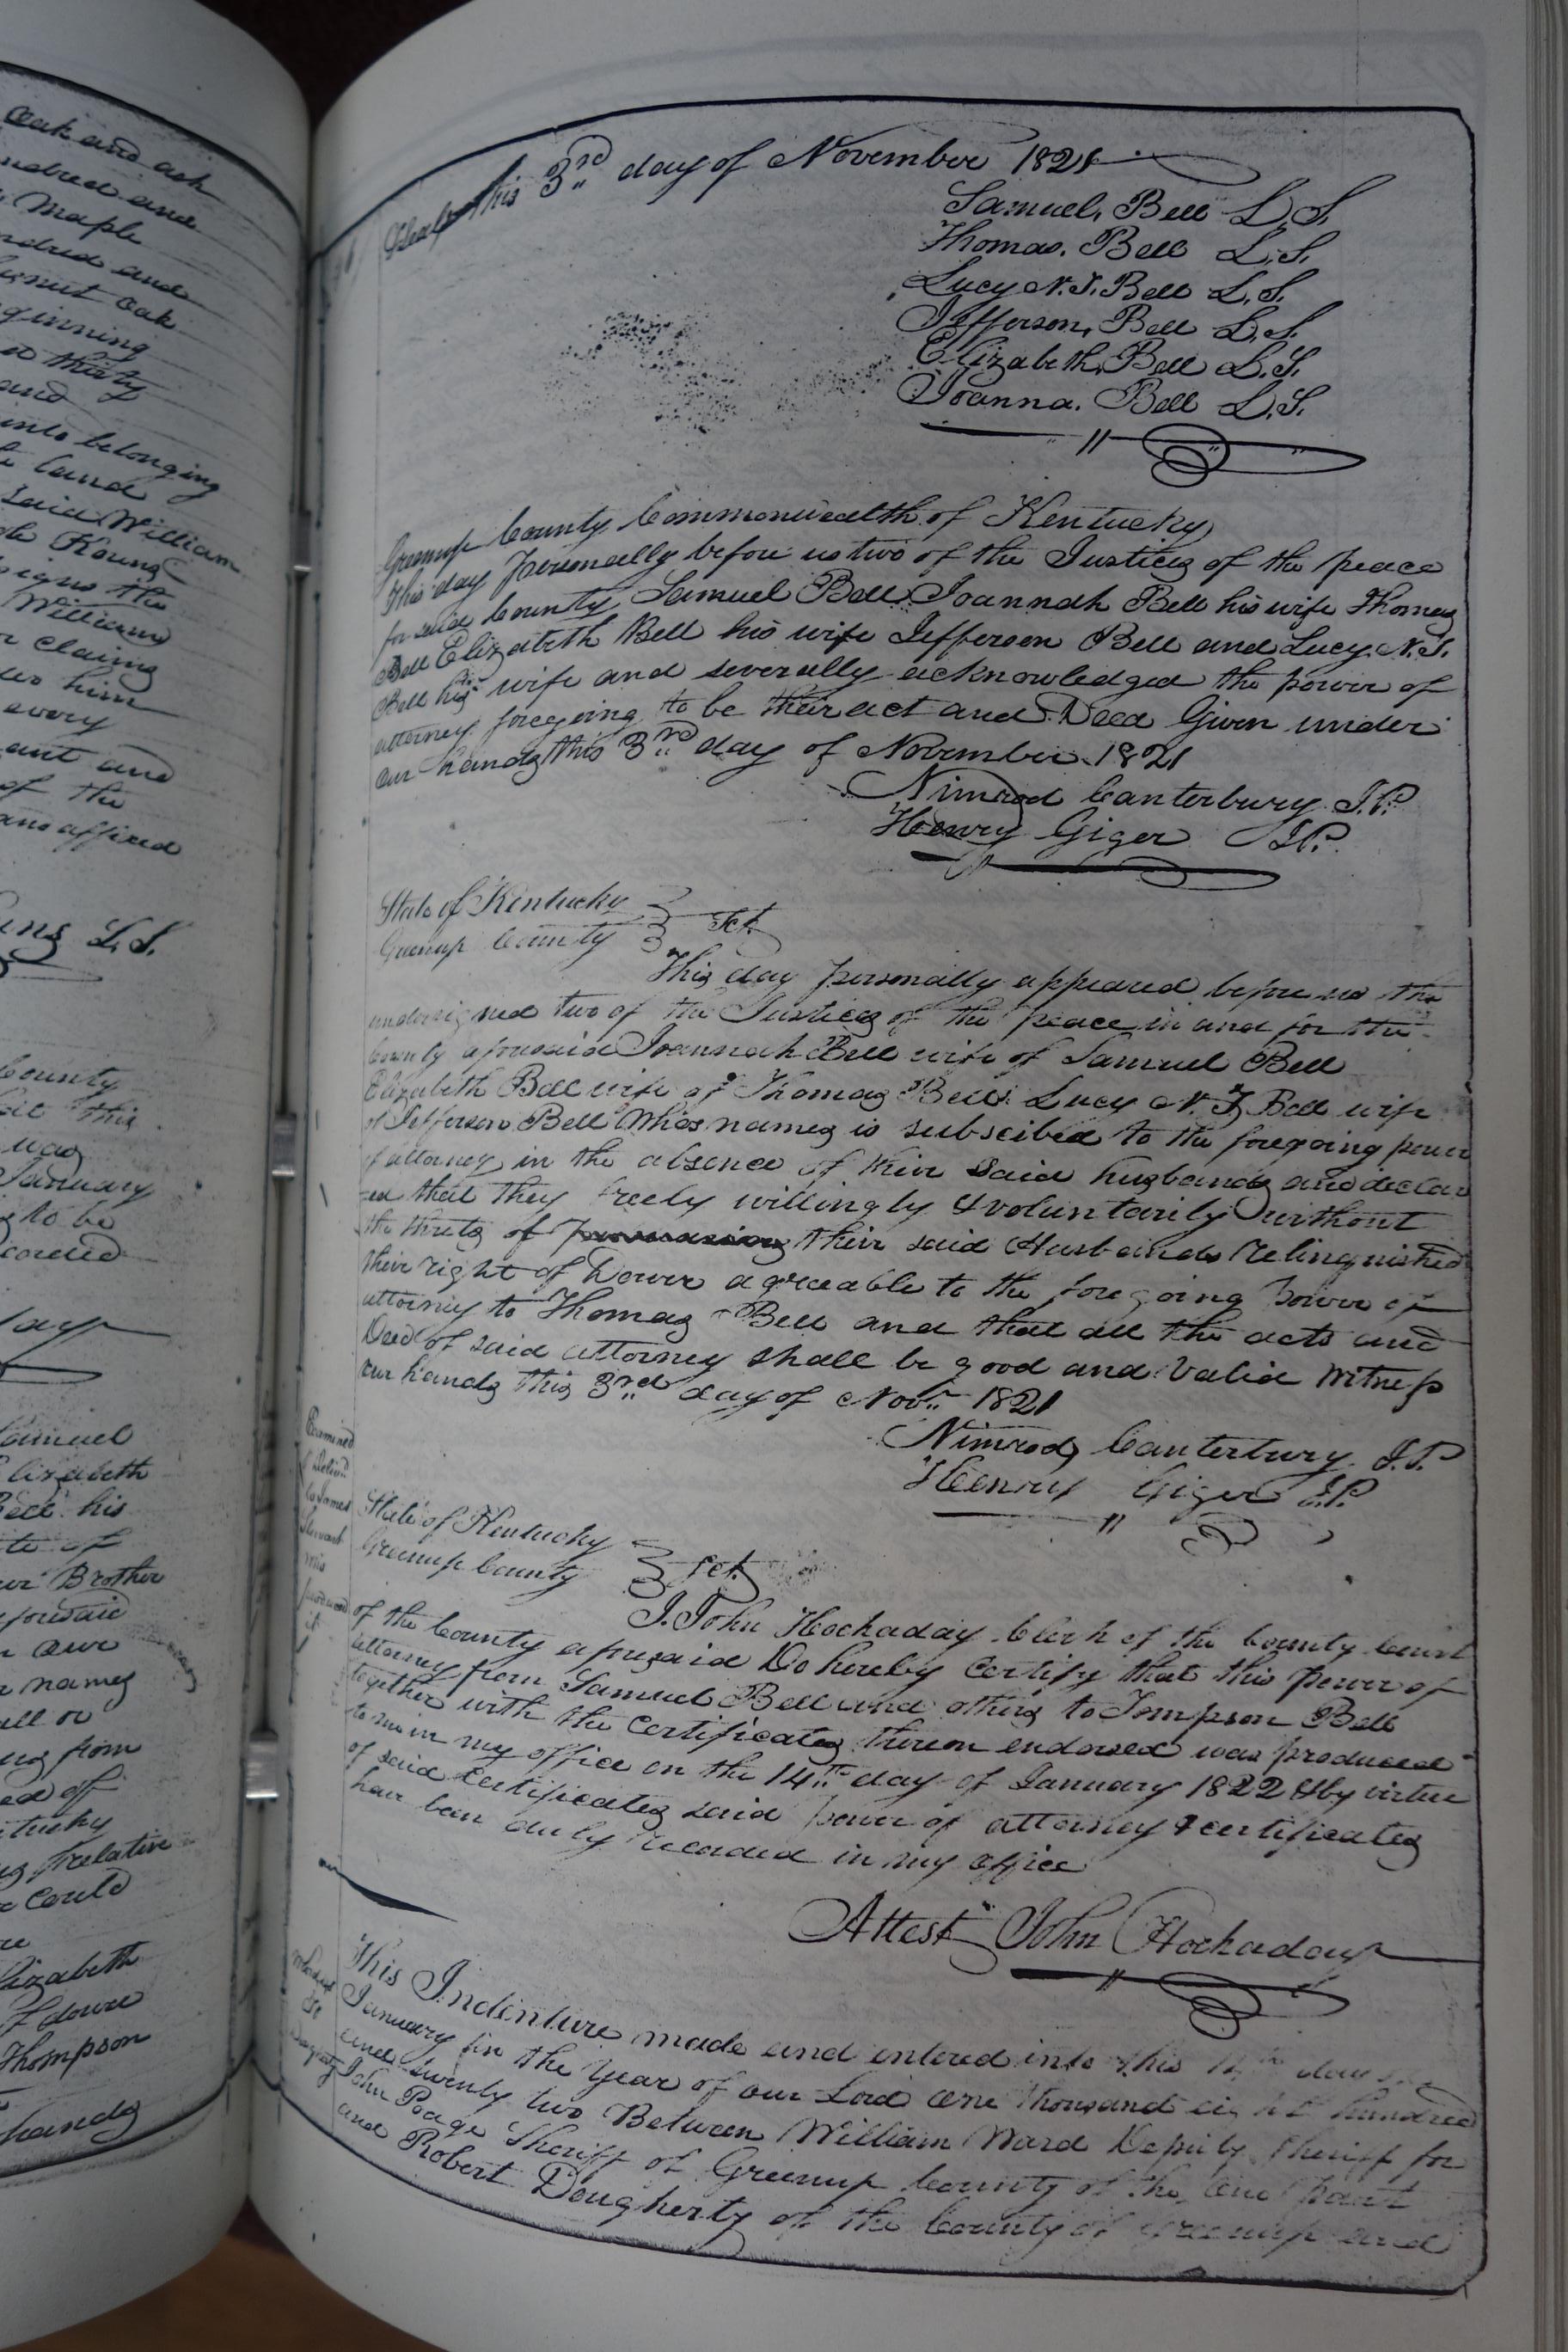 oak and ash
ndred and
Maple
ndred and
esnut oak
ginning
thirty
and
into belonging
land
said William
Young
signs the
William
claims
him
every
ant and
of the
affixed
L.S.
County
this
was
January
to be
corded
Samuel
Elizabeth
Bell his
of
our Brother
foresaid
our
names
all or
from
ed of
tucky
relative
could
Elizabeth
of dower
Thompson
hands
Seals this 3rd day of November 1821
Samuel, Bell L.S.
Thomas. Bell L.S.
Lucy N.T. Bell L.S.
Jefferson, Bell L.S.
Elizabeth, Bell L.S.
Joanna. Bell L.S.
Greenup County Commonwealth of Kentucky
This day Personally before us two of the Justices of the peace
for said County Samuel Bell Joannah Bell his wife Thomas
Bell Elizabeth Bell his wife Jefferson Bell and Lucy N.T.
Bell his wife and severally acknowledged the power of
attorney foregoing to be their act and Deed Given under
our hands this 3rd day of November 1821
Nimrod Canterbury J.P.
Henry Giger J.P.
State of Kentucky
Greenup County Sct
This day personally appeared before us the
undersigned two of the Justices of the peace in and for the
County aforesaid Joannah Bell wife of Samuel Bell
Elizabeth Bell wife of Thomas Bell Lucy N.T. Bell wife
of Jefferson Bell Whos names is subscibed to the foregoing power
of attorney in the absence of their said husbands and declar
ed that they freely willingly & voluntarily without
the threts of their said Husbands Relinquished
their right of Dower agreeable to the foregoing Power of
attorney to Thomas Bell and that all the acts and
Deed of said attorney shall be good and Valid Witness
our hands this 3rd day of Novr 1821
Nimrod Canterbury J.P.
Henry Giger J.P.
Examined
& Deliv.d
to James
Stewart
who
produced
it
State of Kentucky
Greenup County Sct.
I. John Hockaday Clerk of the County Court
of the County aforesaid Do hereby Certify that this Power of
attorney from Samuel Bell and others to Tompson Bell
together with the Certificates thereon endorsed was produced
to me in my office on the 14th day of January 1822 & by virtue
of said Certificates said power of attorney & certificates
have been duly recorded in my office
Attest John Hockaday
This Indenture made and entered into this day
January in the Year of our Lord one thousand eight hundred
and twenty two Between William Ward Deputy Sheriff for
John Poage Sheriff of Greenup County of the one part
and Robert Dougherty of the County of Greenup and